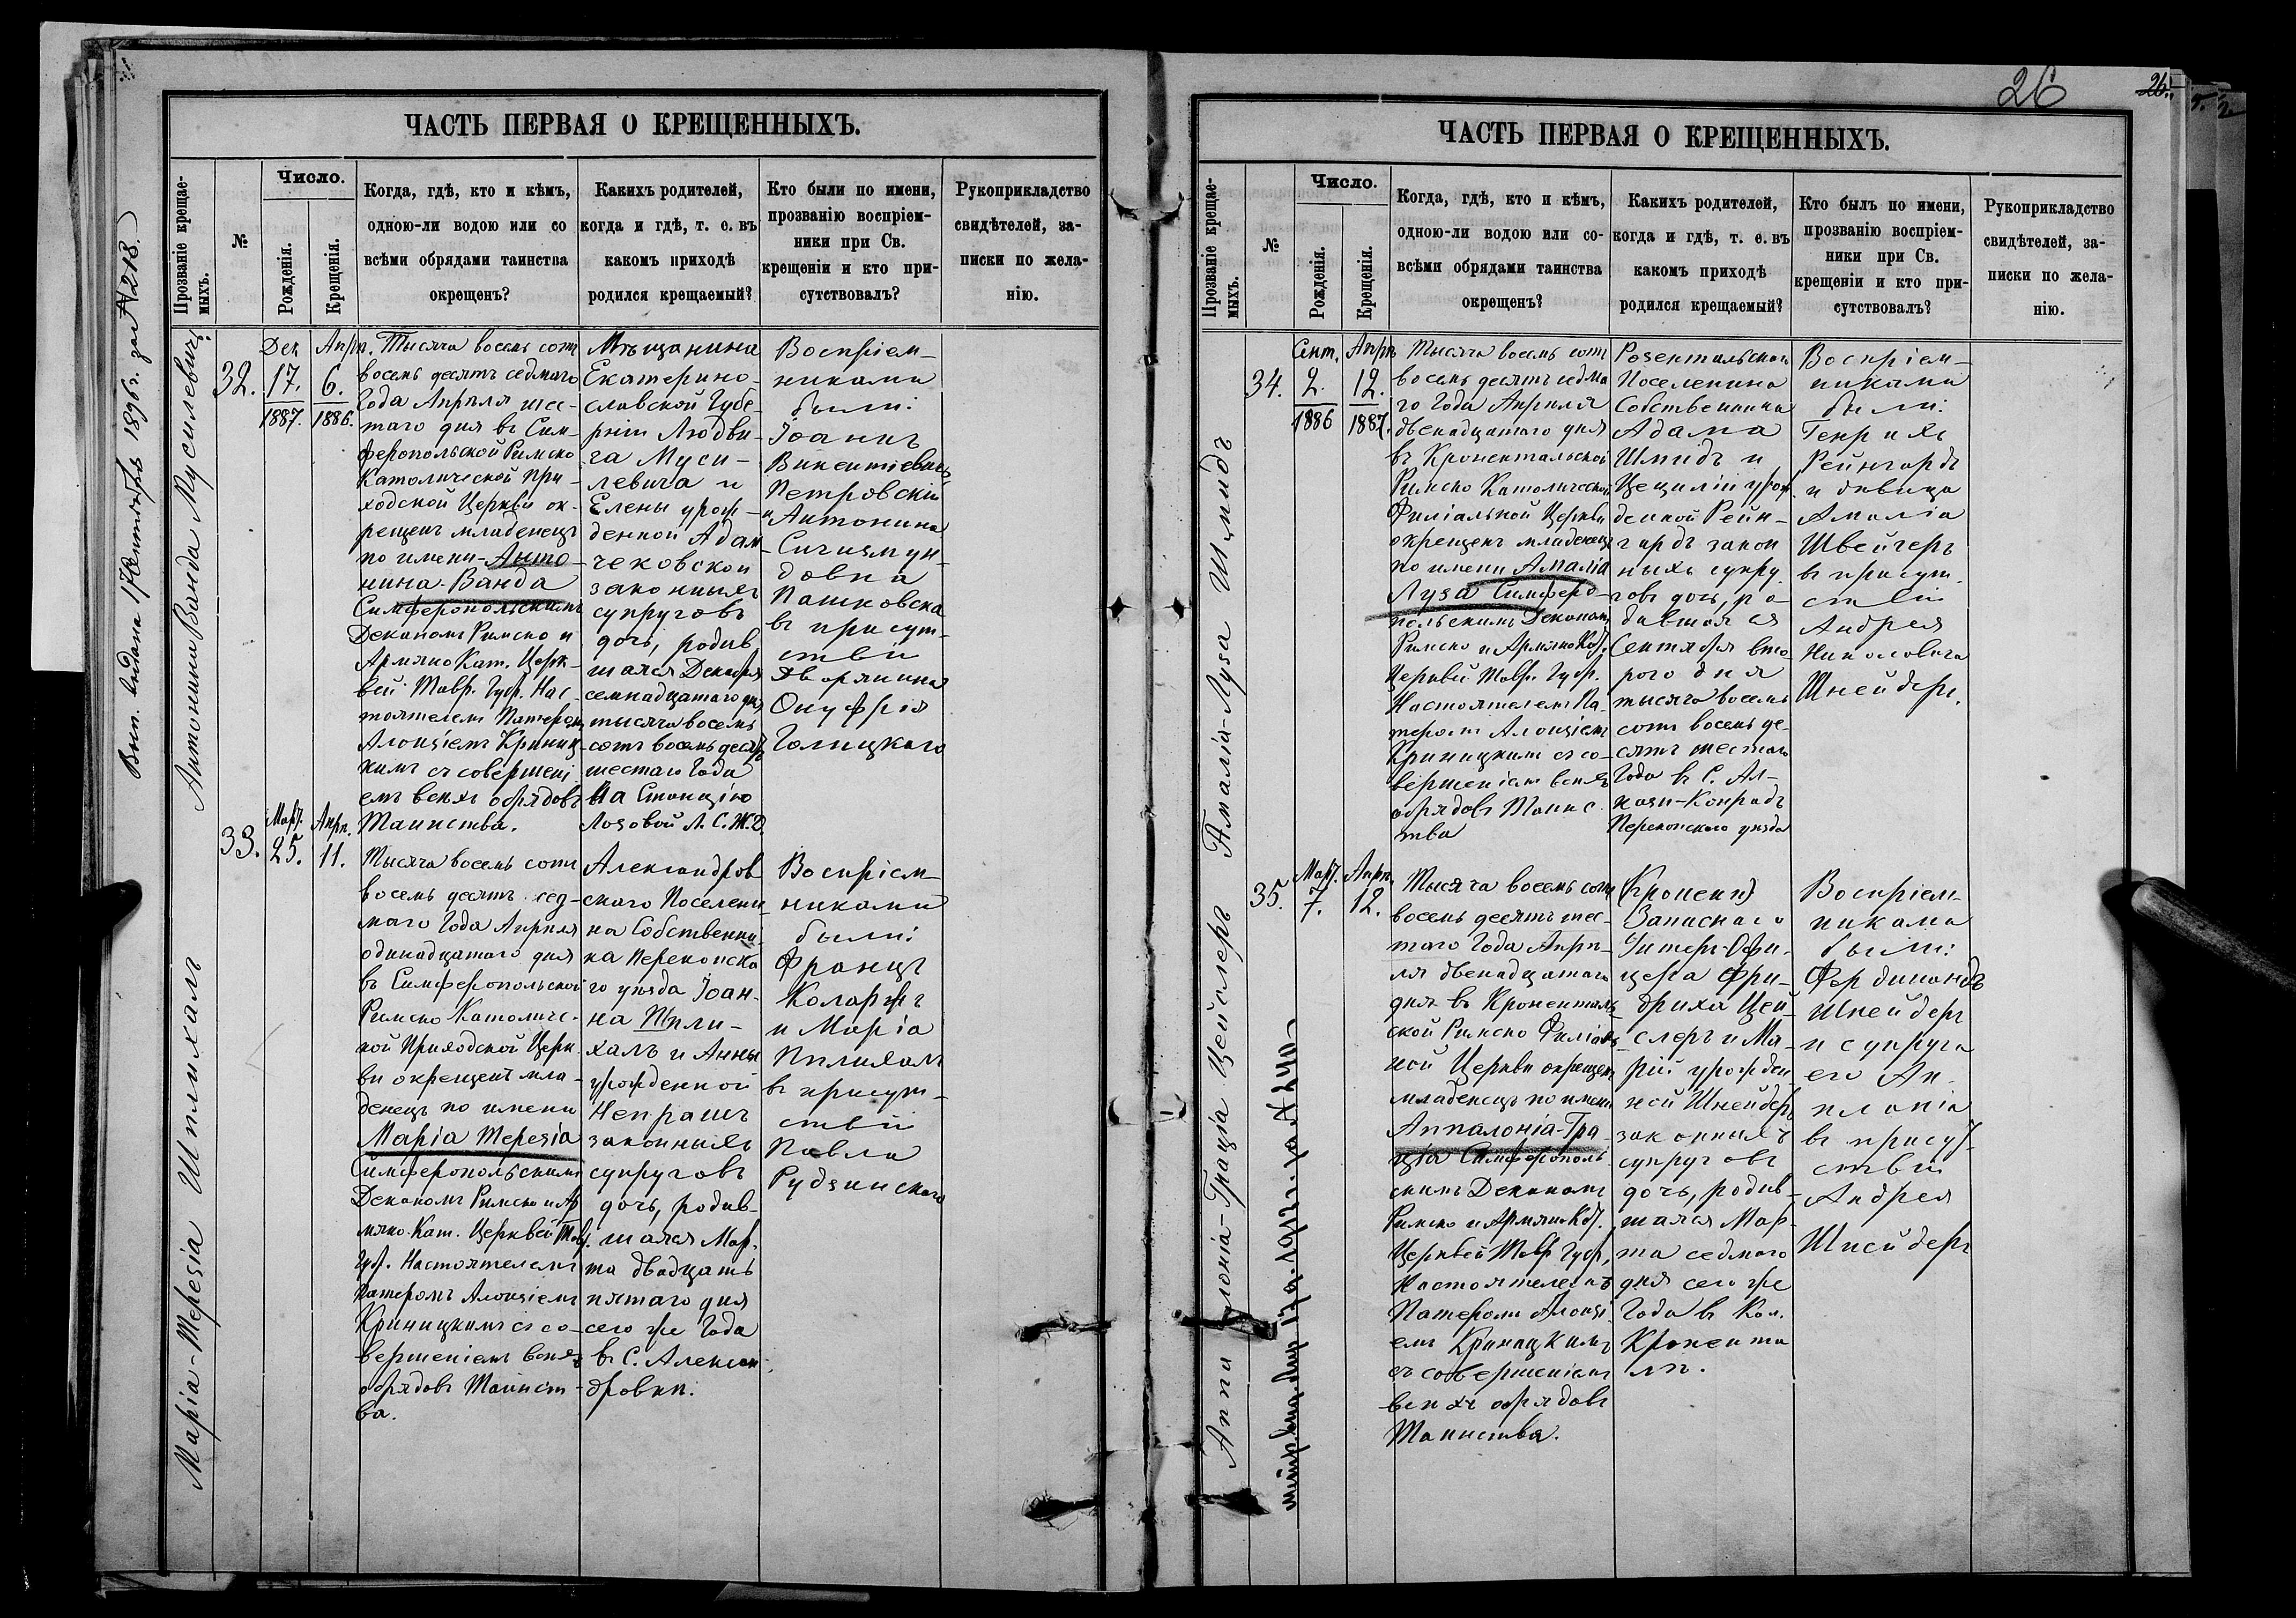 Вып. выдана 17 Сентября 1896 г. за № 218.
ЧАСТЬ ПЕРВАЯ О КРЕЩЕННЫХЪ.
Прозваніе крещае-
мыхъ.
№
Число.
Рожденія.
Крещенія.
Когда, гдѣ, кто и кѣмъ,
одною-ли водою или со
всѣми обрядами таинства
окрещенъ?
Какихъ родителей,
когда и гдѣ, т. е. въ
какомъ приходѣ
родился крещаемый?
Кто были по имени,
прозванію воспріем-
ники при Св.
крещеніи и кто при-
сутствовалъ?
Рукоприкладство
свидѣтелей, за-
писки по жела-
нію.
Антонина Ванда Мусилевичъ
32.
Дек.
17.
1887.
Апрл.
6.
1886.
Тысяча восемь сотъ
восемь десятъ седмаго
Года Апрѣля шес-
таго дня въ Сим-
феропольской Римско
Католической При-
ходской Церкви ок-
рещенъ младенецъ
по имени-Анто-
нина-Ванда
Симферопольскимъ
Деканомъ Римско и
Армяно Кат. Церк-
вей Тавр. Губ. Нас-
тоятелемъ Патеромъ
Алоизіемъ Криниц-
кимъ съ совершені-
емъ всѣхъ обрядовъ
Таинства.
Мѣщанина
Екатерино-
славской Губе-
рніи Людви-
га Муси-
левича и
Елены урож-
денной Адам-
чековской
законныхъ
супруговъ
дочь, родив
шаяся Декабря
семнадцатаго дня
тысяча восемь
сотъ восемь десятъ
шестаго Года
На Станціи
Лозовой Л. С. Ж. Д.
Воспріем-
никами
были:
Іоаннъ
Викентіевичъ
Петровскій
и Антонина
Сигизмун-
довна
Пашковска
въ присут-
ствіи
Дворянина
Онуфрія
Голицкаго
Марія-Терезія Шплихалъ
33.
Март.
25.
Апрл.
11.
Тысяча восемь сотъ
восемь десятъ сед-
маго Года Апрѣля
одинадцатаго дня
въ Симферопольской
Римско Католичес-
кой Приходской Церк-
ви окрещенъ мла-
денецъ по имени
Марія Терезія
Симферопольскимъ
Деканомъ Римско и Ар
мяно-Кат. Церквей Тав.
Губ. Настоятелемъ
Патеромъ Алоизіемъ
Криницкимъ съ со-
вершеніемъ всѣхъ
обрядовъ Таинст-
ва.
Александров-
скаго Поселени-
на Собственни-
ка Перекопска
го уѣзда Іоан-
на Шпли-
халъ и Анны
урожденной
Непрашъ
законныхъ
супруговъ
дочь, родив-
шаяся Мар-
та двадцать
пятаго дня
сего же Года
въ С. Алексан-
дровки.
Воспріем-
никами
были:
Францъ
Коларжъ
и Марія
Пплихалъ
въ присут-
ствіи
Павла
Рудзинскаго
26
26.
ЧАСТЬ ПЕРВАЯ О КРЕЩЕННЫХЪ.
Прозваніе крещае-
мыхъ.
№
Число.
Рожденія.
Крещенія.
Когда, гдѣ, кто и кѣмъ,
одною-ли водою или со-
всѣми обрядами таинства
окрещенъ?
Какихъ родителей,
когда и гдѣ, т. е. въ
какомъ приходѣ
родился крещаемый?
Кто былъ по имени,
прозванію воспріем-
ники при Св.
крещеніи и кто при-
сутствовалъ?
Рукоприкладство
свидѣтелей, за-
писки по жела-
нію.
Амалія-Луза Шмидъ
34.
Сент.
2.
1886
Апрл
12.
1887.
Тысяча восемь сотъ
восемь десятъ седма
го Года Апрѣля
двенадцатаго дня
въ Кронентальской
Римско Католической
Филіальной Церкви
окрещенъ младенецъ
по имени Амалія
Луза Симферо-
польскимъ Деканомъ
Римско и Армяно Кат.
Церквей Тавр. Губ.
Настоятелемъ Па-
теромъ Алоизіемъ
Криницкимъ съ со-
вершеніемъ всѣхъ
обрядовъ Таинс
тва
Розентальскаго
Поселенина
Собственника
Адама
Шмидъ и
Цециліи урож
денной Рейн-
гардъ закон
ныхъ супру
говъ дочь, ро-
дившаяся
Сентября вто-
рого дня
тысяча восемь
сотъ восемь де-
сятъ шестаго
Года въ С. Ал-
кази-Конрадъ
Перекопскаго уѣзда
Воспріем-
никами
были:
Генрихъ
Рейнгардъ
и дѣвица
Амалія
Швейгеръ
въ присут-
ствіи
Андрея
Николовича
Шнейдеръ.
Аппалонія-Грація Цейслеръ
Метр. выд. Апр. 17 д. 1912 г. за № 240
35.
Март.
7.
Апрл.
12.
Тысяча восемь сотъ
восемь десятъ шес-
таго Года Апрѣ-
ля двенадцатаго
дня въ Кроненталь
ской Римско Филіаль
ной Церкви окрещенъ
младенецъ по имени
Аппалонія-Гра
ція Симферополь
скимъ Деканомъ
Римско и Армяно Кат.
Церквей Тавр Губ,
Настоятелемъ
Патеромъ Алоизі
емъ Криницкимъ
съ совершеніемъ
всѣхъ обрядовъ
Таинства.
Запаснаго
Унтеръ-Офи-
цера Фри-
дриха Цей
слеръ и Ма-
ріи урожден
ной Шнейдеръ
законныхъ
супруговъ
дочь, родив-
шаяся Мар-
та седмаго
дня сего же
Года въ Кол.
Кронента
лѣ.
Воспріем-
никами
были:
Фердинандъ
Шнейдеръ
и супруга
его Ап-
плонія
въ присут-
ствіи
Андрея
Шнейдеръ